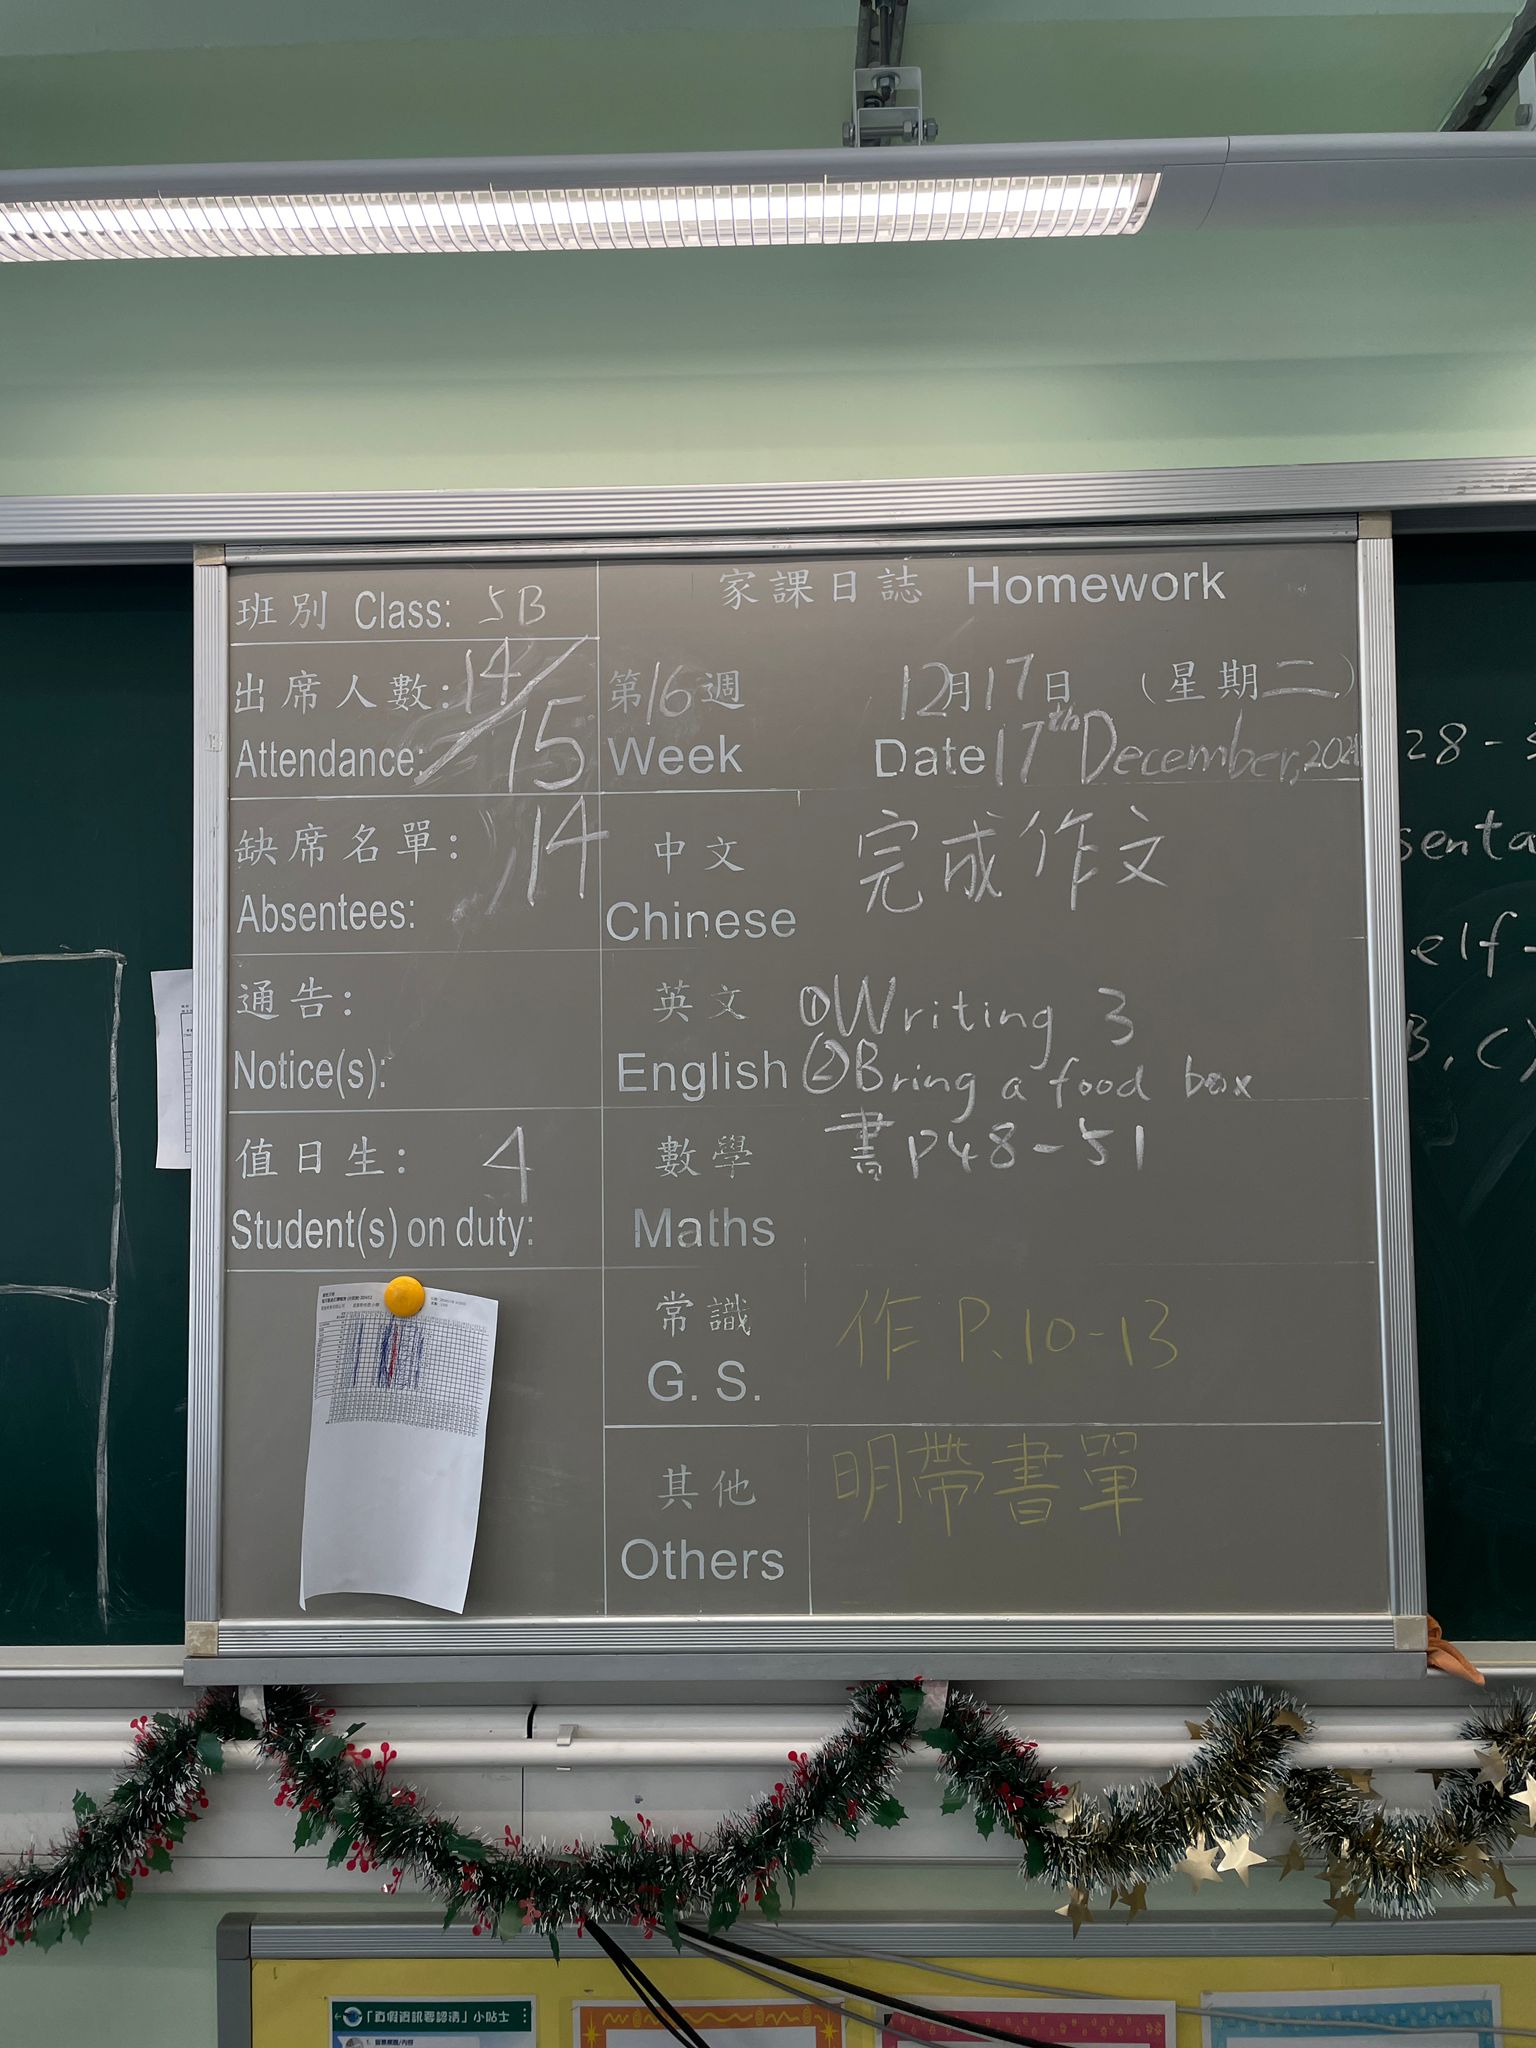 班別 Class: 5B
出席人數: 14/15
Attendance:
缺席名單: 14
Absentees:
通告:
Notice(s):
值日生: 4
Student(s) on duty:
家課日誌 Homework
第16週 12月17日 (星期二)
Week Date 17th December, 2024
中文 完成作文
Chinese
英文 ①Writing 3
English ②Bring a food box
數學 書P48-51
Maths
常識 作P.10-13
G. S.
其他 明帶書單
Others
28-
elf-
B, C)
「真假資訊要認清」小貼士